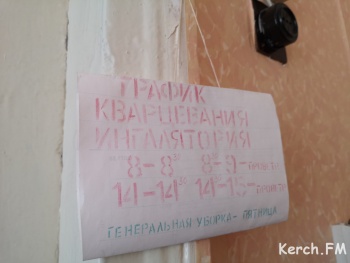 ГРАФИК
КВАРЦЕВАНИЯ
ИНГАЛЯТОРИЯ
8-8 8-9-
14-14 14-15-
ГЕНЕРАЛЬНАЯ УБОРКА- ПЯТНИЦА
Kerch.FM